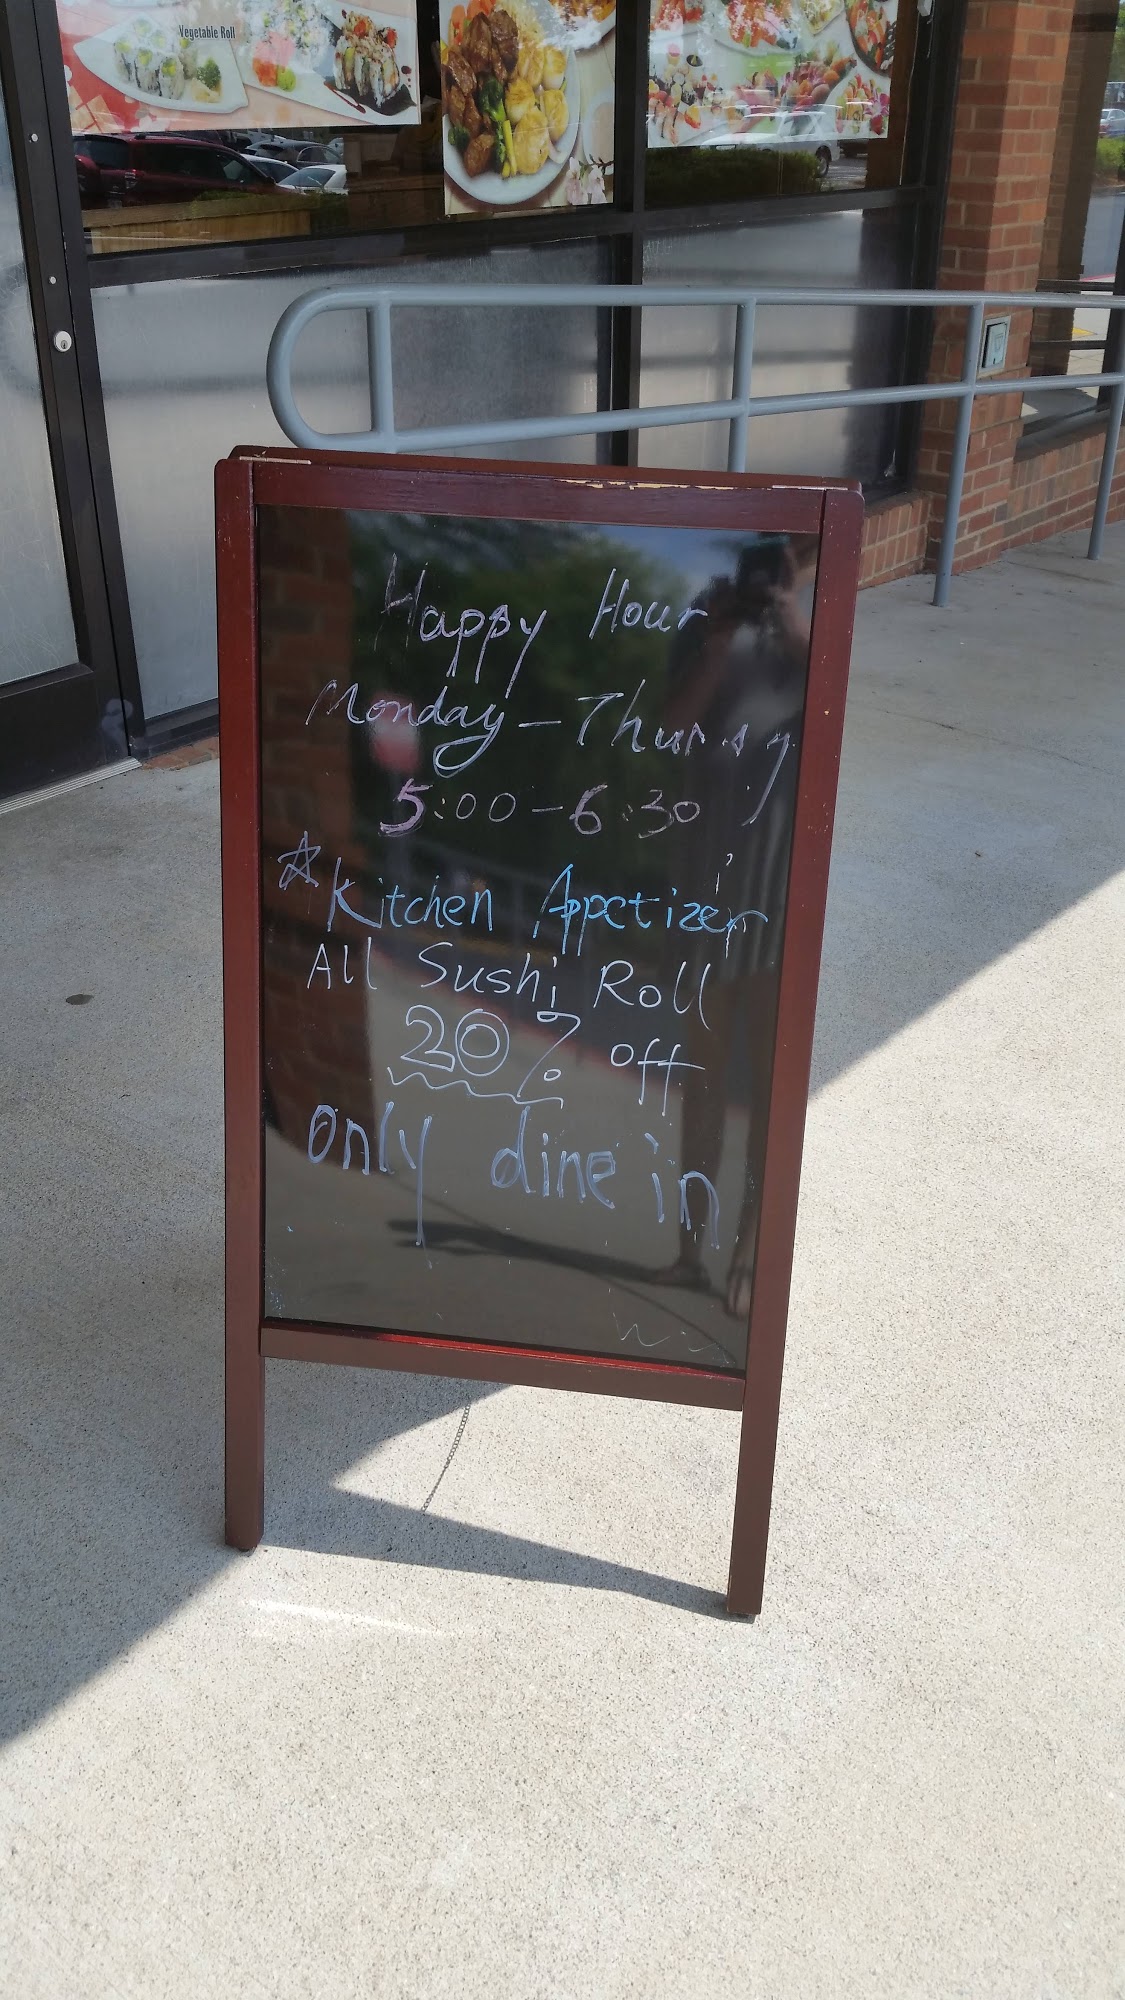 Vegetable Roll
Happy Hour
Monday - Thursy
5:00 - 6:30
☆Kitchen Appetizer
All Sushi Roll
20% off
only dine in